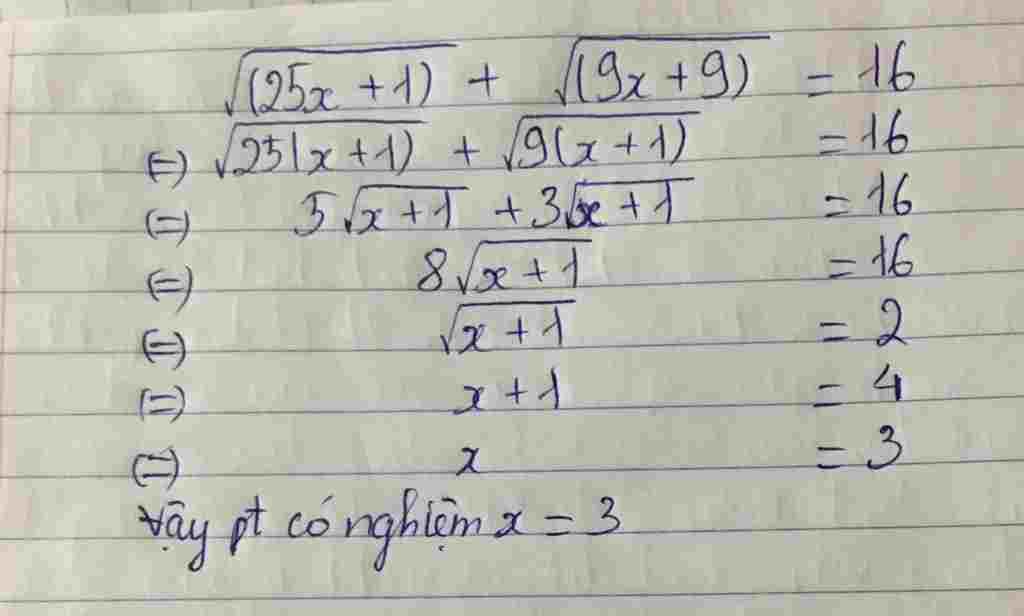 √(25x + 1) + √(9x + 9) = 16
(=) √25(x + 1) + √9(x + 1) = 16
(=) 5√x + 1 + 3√x + 1 = 16
(=) 8√x + 1 = 16
(=) √x + 1 = 2
(=) x + 1 = 4
(=) x = 3
Vậy pt có nghiệm x = 3